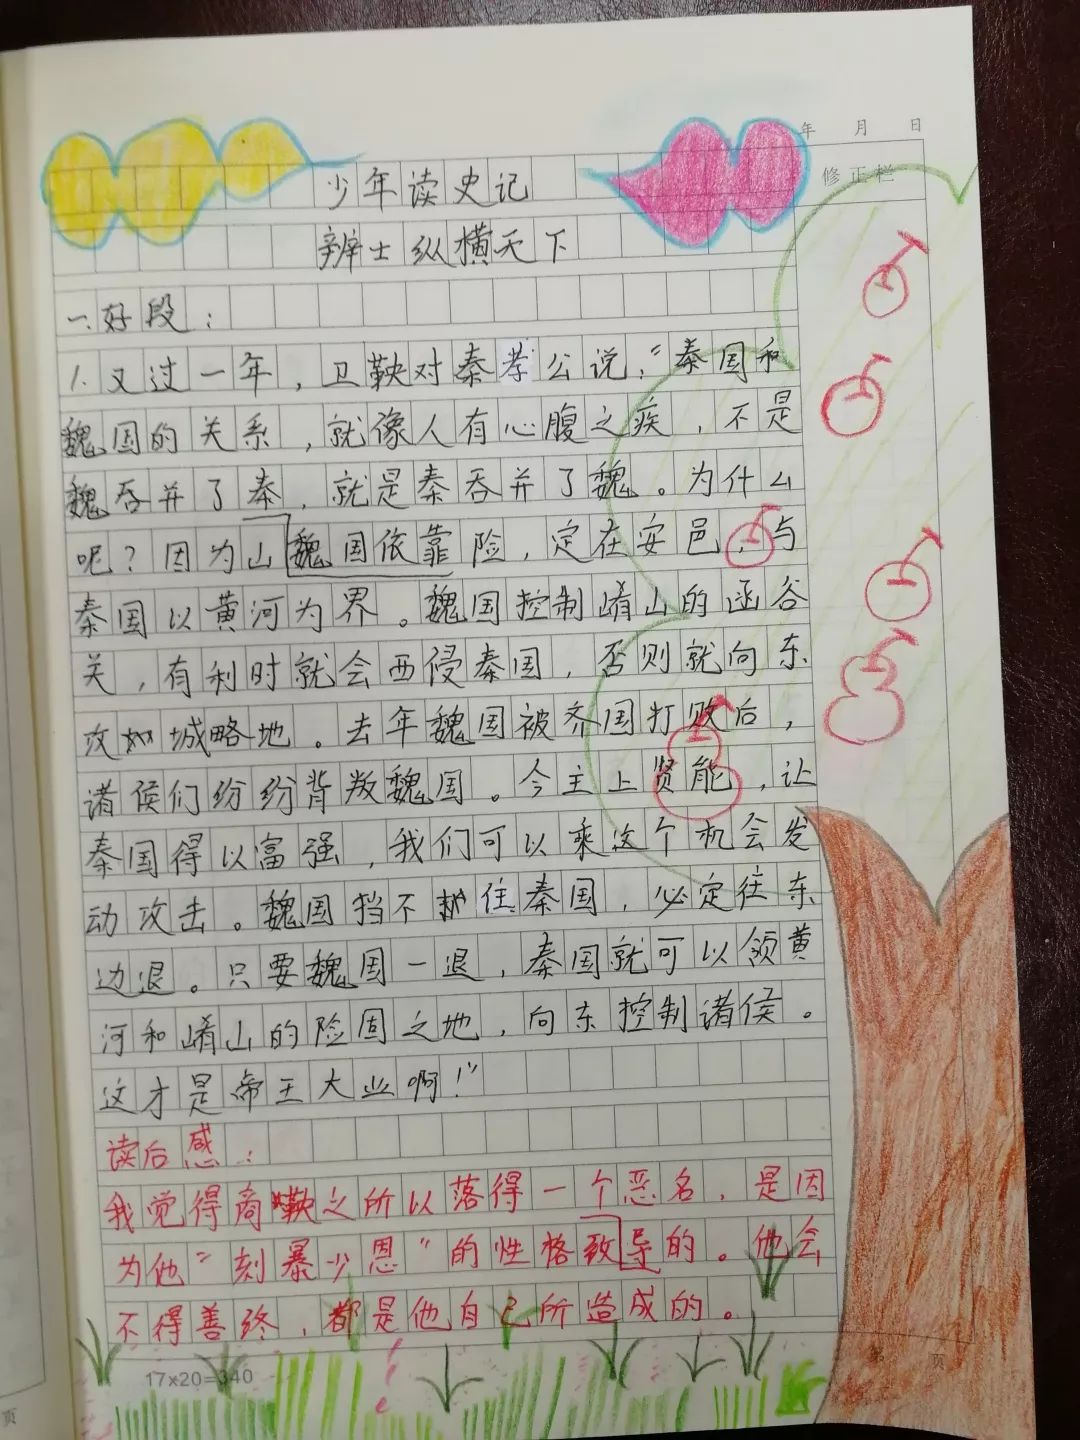 年 月 日
修正栏
少年读史记
辨士纵横天下
一.好段：
1.又过一年，卫鞅对秦孝公说：“秦国和
魏国的关系，就像人有心腹之疾，不是
魏吞并了秦，就是秦吞并了魏。为什么
呢？因为山魏国依靠险，定在安邑，与
秦国以黄河为界。魏国控制崤山的函谷
关，有利时就会西侵秦国，否则就向东
攻城略地。去年魏国被齐国打败后，
诸侯们纷纷背叛魏国。今主上贤能，让
秦国得以富强，我们可以乘这个机会发
动攻击。魏国挡不住秦国，必定往东
边退。只要魏国一退，秦国就可以领黄
河和崤山的险固之地，向东控制诸侯。
这才是帝王大业啊！”
读后感：
我觉得商鞅之所以落得一个恶名，是因
为他“刻暴少恩”的性格致导的。他会
不得善终，都是他自己所造成的。
17×20=340
第 页
页